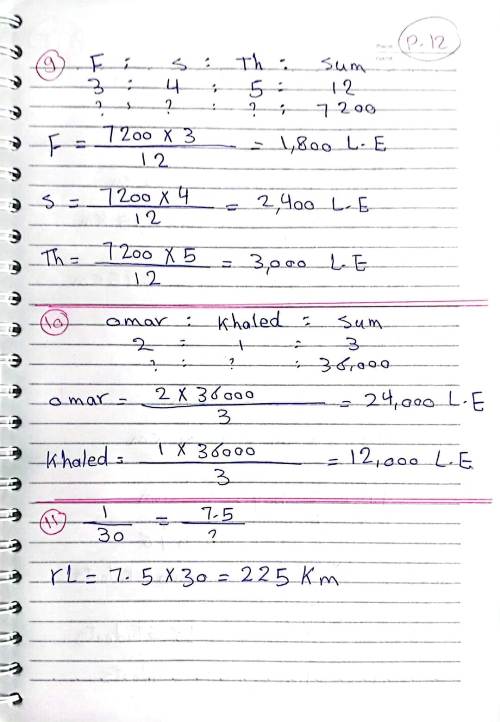 P.12
9 F : S : Th : Sum
3 : 4 : 5 : 12
? : ? : ? : 7200
F = 7200 x 3 / 12 = 1,800 L.E
S = 7200 x 4 / 12 = 2,400 L.E
Th = 7200 x 5 / 12 = 3,000 L.E
10 omar : Khaled : Sum
2 : 1 : 3
? : ? : 36,000
omar = 2 x 36000 / 3 = 24,000 L.E
Khaled = 1 x 36000 / 3 = 12,000 L.E
11 1 / 30 = 7.5 / ?
rL = 7.5 x 30 = 225 Km